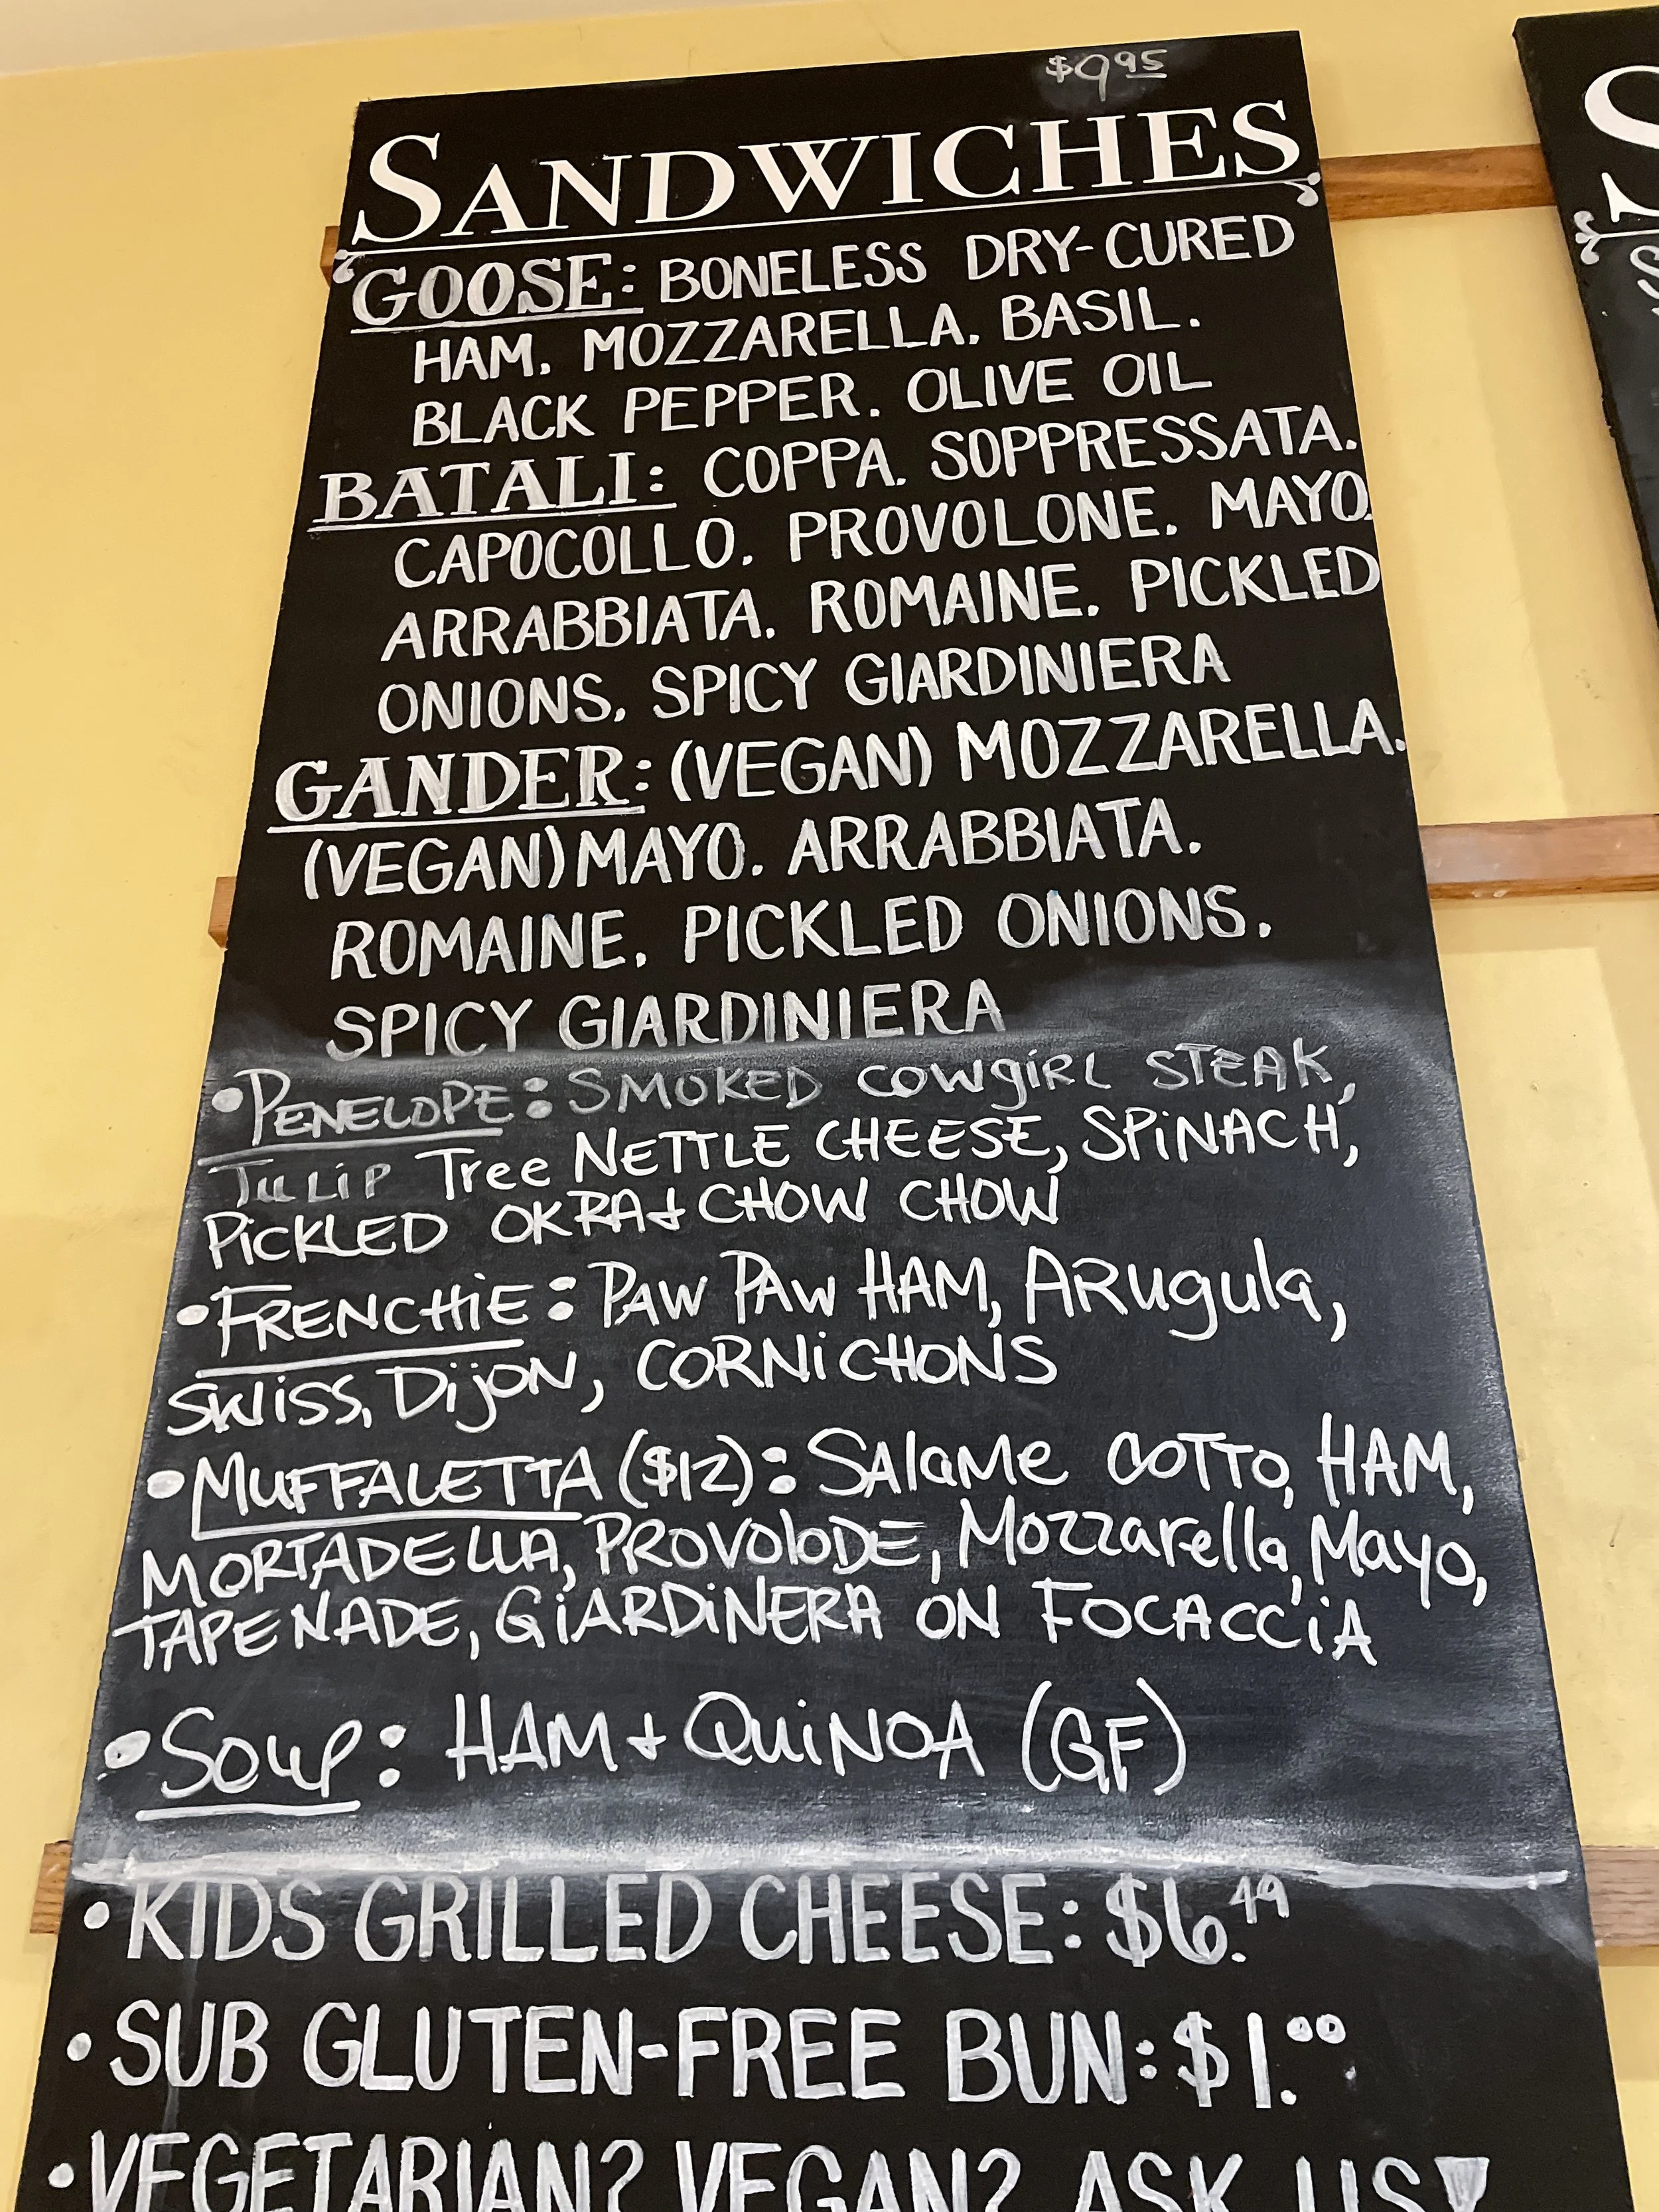 $9.95
SANDWICHES
GOOSE: BONELESS DRY-CURED
HAM. MOZZARELLA. BASIL.
BLACK PEPPER. OLIVE OIL
BATALI: COPPA. SOPPRESSATA.
CAPOCOLLO. PROVOLONE. MAYO.
ARRABBIATA. ROMAINE. PICKLED
ONIONS. SPICY GIARDINIERA
GANDER: (VEGAN) MOZZARELLA.
(VEGAN) MAYO. ARRABBIATA.
ROMAINE. PICKLED ONIONS.
SPICY GIARDINIERA
•PENELOPE: SMOKED COWgiRL STEAK,
TULiP Tree NETTLE CHEESE, SPiNACH,
PiCKLED OKRA + CHOW CHOW
•FRENCHiE: PAW PAW HAM, ARugula,
SWiSS, DijON, CORNiCHONS
•MUFFALETTA ($12): SAlaMe COTTO, HAM,
MORTADELLA, PROVOloDE, Mozzarella, Mayo,
TAPENADE, GiARDiNERA ON FOCACCiA
•Soup: HAM + QuiNOA (GF)
•KIDS GRILLED CHEESE: $6.49
•SUB GLUTEN-FREE BUN: $1.00
•VEGETARIAN? VEGAN? ASK US!